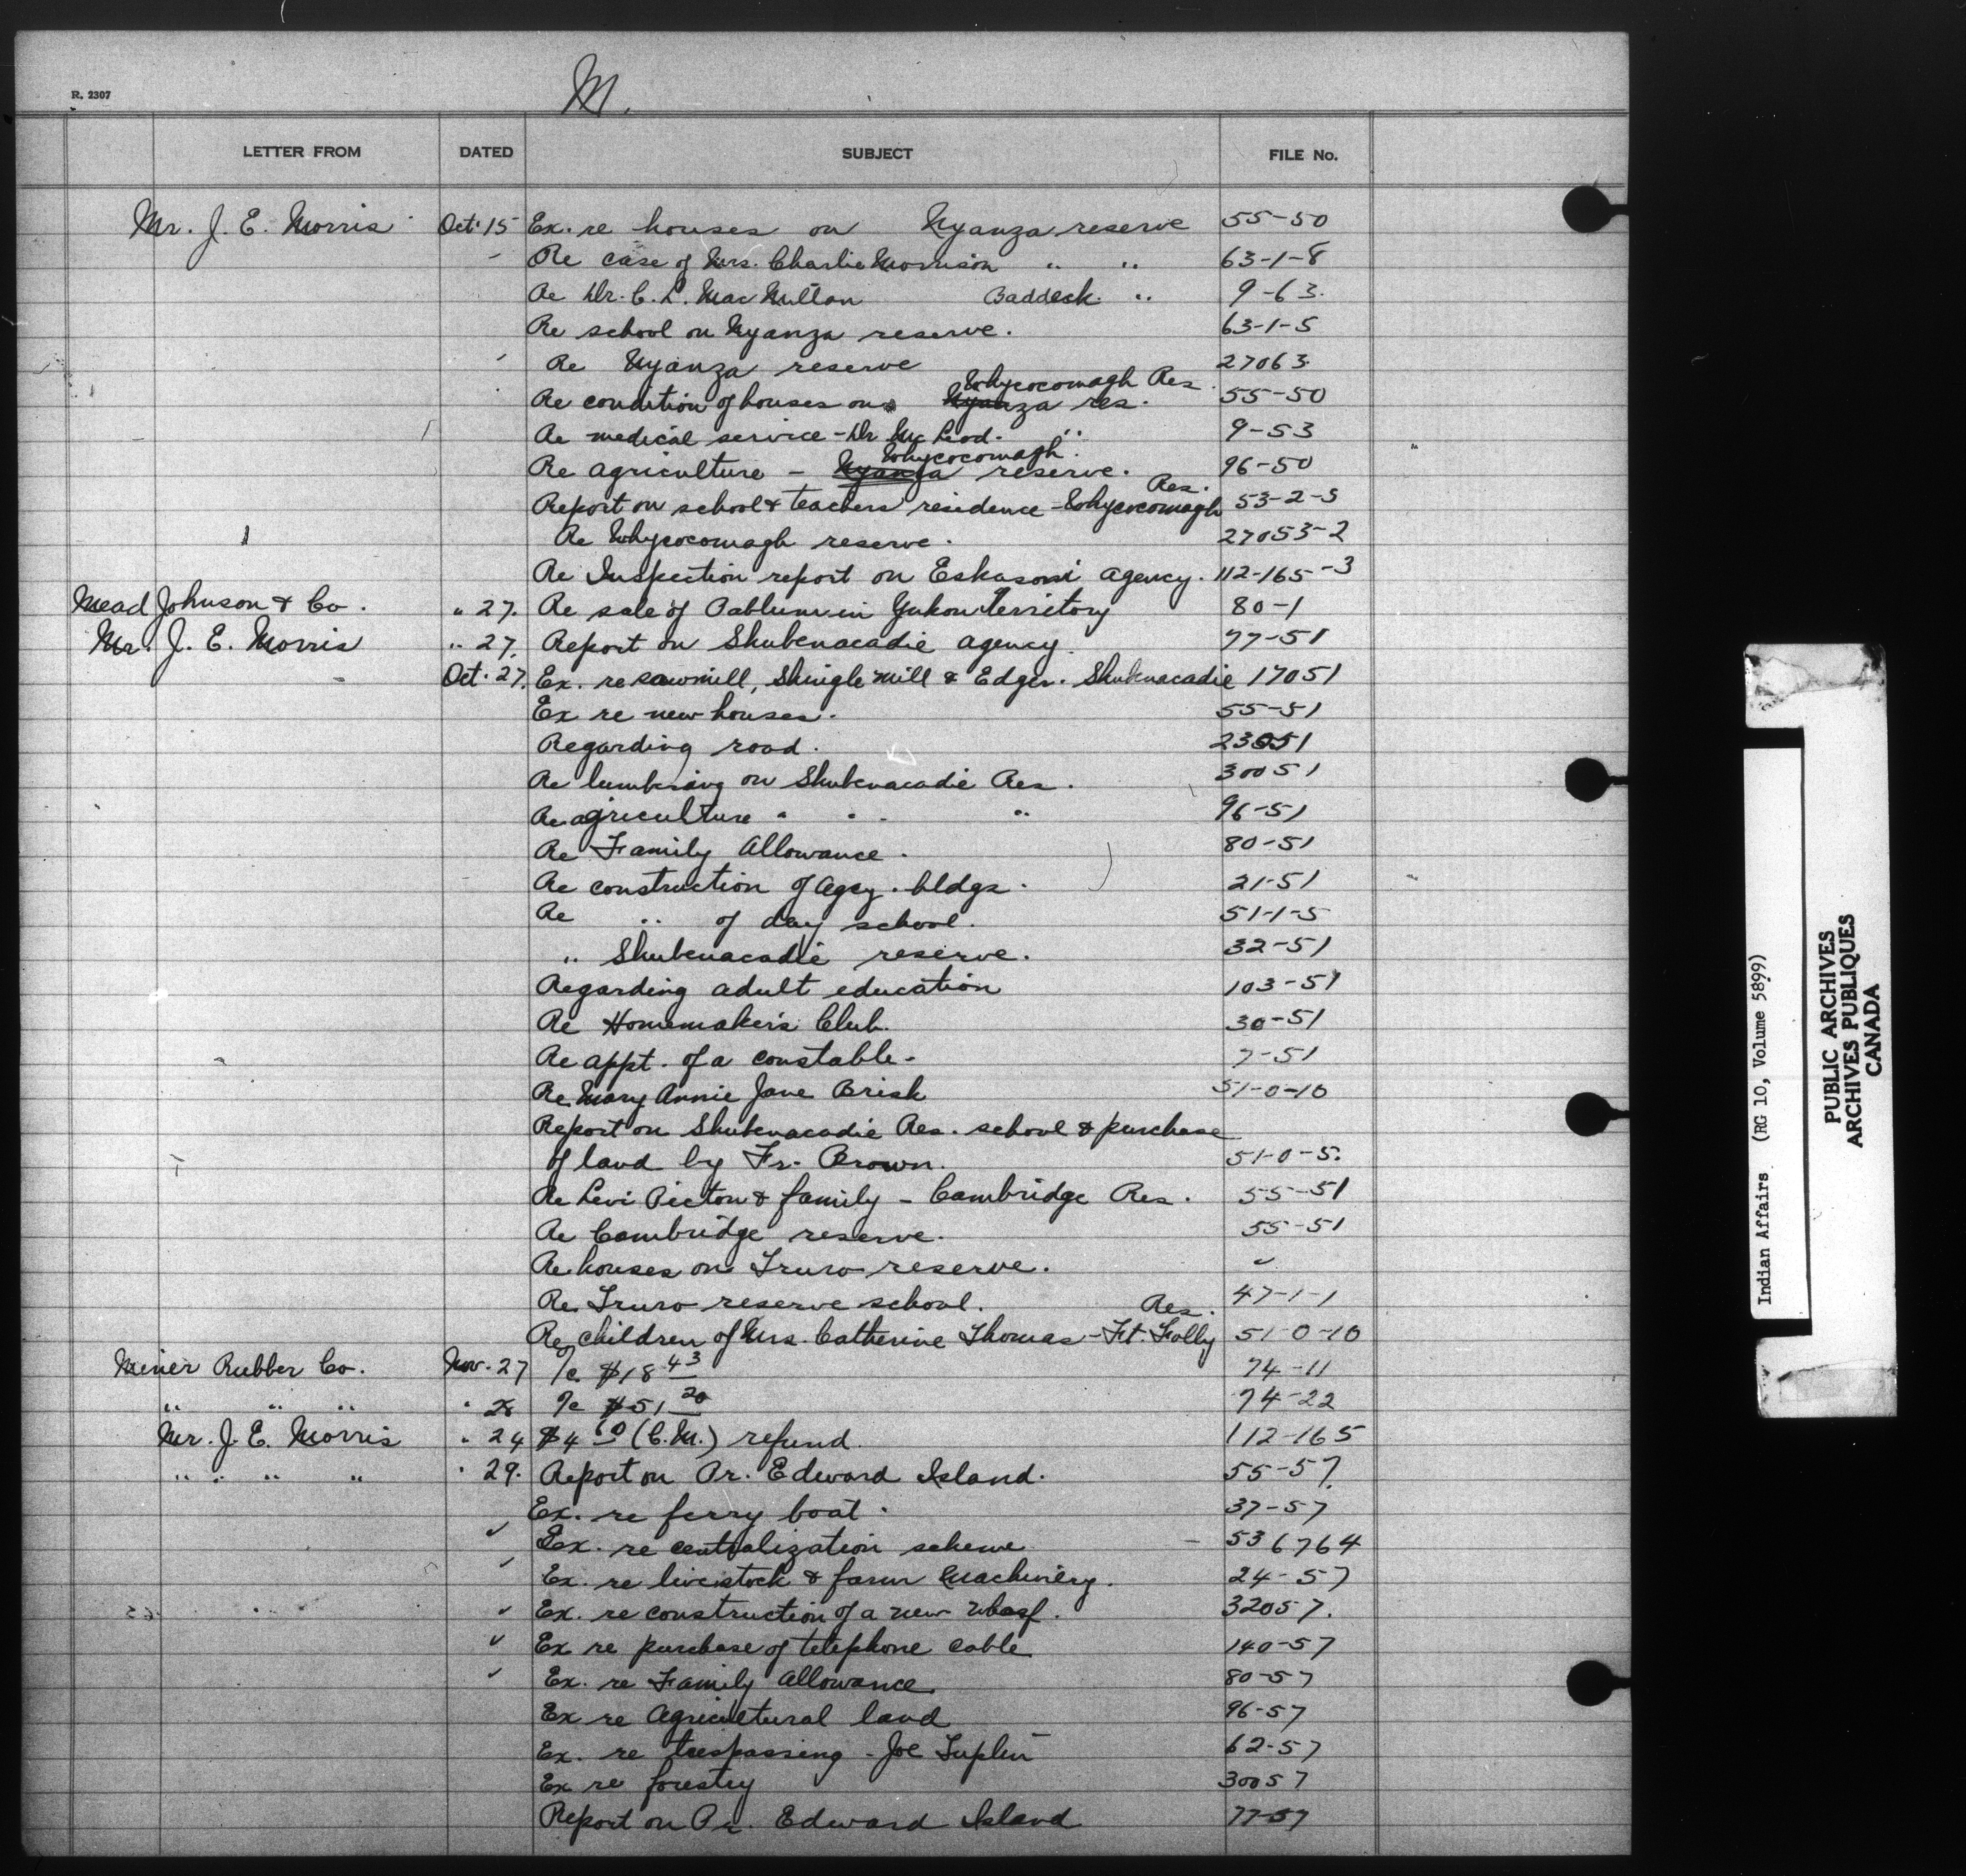 M.
R. 2307
LETTER FROM DATED SUBJECT FILE No.
Mr. J. E. Morris Oct. 15 Ex. re houses on Nyanza reserve 55-50
Re case of Mrs. Charlie Morrison " " 63-1-8
Re Dr. C. L. MacMillan Baddeck. " 9-63.
Re school on Nyanza reserve. 63-1-5
Re Nyanza reserve 27063.
Whycocomagh Res.
Re condition of houses on Nyanza res. 55-50
Re medical service - Dr McLeod. " 9-53
Whycocomagh.
Re agriculture - Nyanza reserve. 96-50
Res.
Report on school & teachers residence - Whycocomagh 53-2-5
Re Whycocomagh reserve. 27053-2
Re Inspection report on Eskasoni agency. 112-165-3
Mead Johnson & Co. " 27. Re sale of Pablum in Yukon Territory 80-1
Mr. J. E. Morris " 27. Report on Shubenacadie agency. 77-51
Oct. 27. Ex. re sawmill, Shingle Mill & Edger. Shubenacadie 17051
Ex re new houses. 55-51
Regarding road. 23051
Re lumbering on Shubenacadie Res. 30051
Re agriculture " " " 96-51
Re Family Allowance. 80-51
Re construction of agcy. bldgs. 21-51
Re " of day school. 51-1-5
" Shubenacadie reserve. 32-51
Regarding adult education 103-51
Re Homemakers Club. 30-51
Re appt. of a constable. 7-51
Re Mary Annie Jane Brisk 51-0-10
Report on Shubenacadie Res. school & purchase
of land by Fr. Brown. 51-0-5.
Re Levi Picton & family - Cambridge Res. 55-51
Re Cambridge reserve. 55-51
Re houses on Truro reserve. "
Re Truro reserve school. 47-1-1
Res.
Re children of Mrs. Catherine Thomas - Ft. Folly 51-0-10
Miner Rubber Co. Nov. 27 %c $18 43 74-11
" " " " 28 %c $51 20 74-22
Mr. J. E. Morris " 24 $4 60 (C.M.) refund. 112-165
" " " " " 29. Report on Pr. Edward Island. 55-57.
Ex. re ferry boat. 37-57
Ex. re centralization scheme - 536764
Ex. re livestock & farm Machinery. 24-57
Ex. re construction of a new Wharf. 32057.
Ex re purchase of telephone cable 140-57
Ex. re Family Allowance. 80-57
Ex re Agricultural land 96-57
Ex. re trespassing - Joe Tuplin 62-57
Ex re forestry 30057
Report on Pr. Edward Island 77-57
Indian Affairs (RG 10, Volume 5899)
PUBLIC ARCHIVES
ARCHIVES PUBLIQUES
CANADA